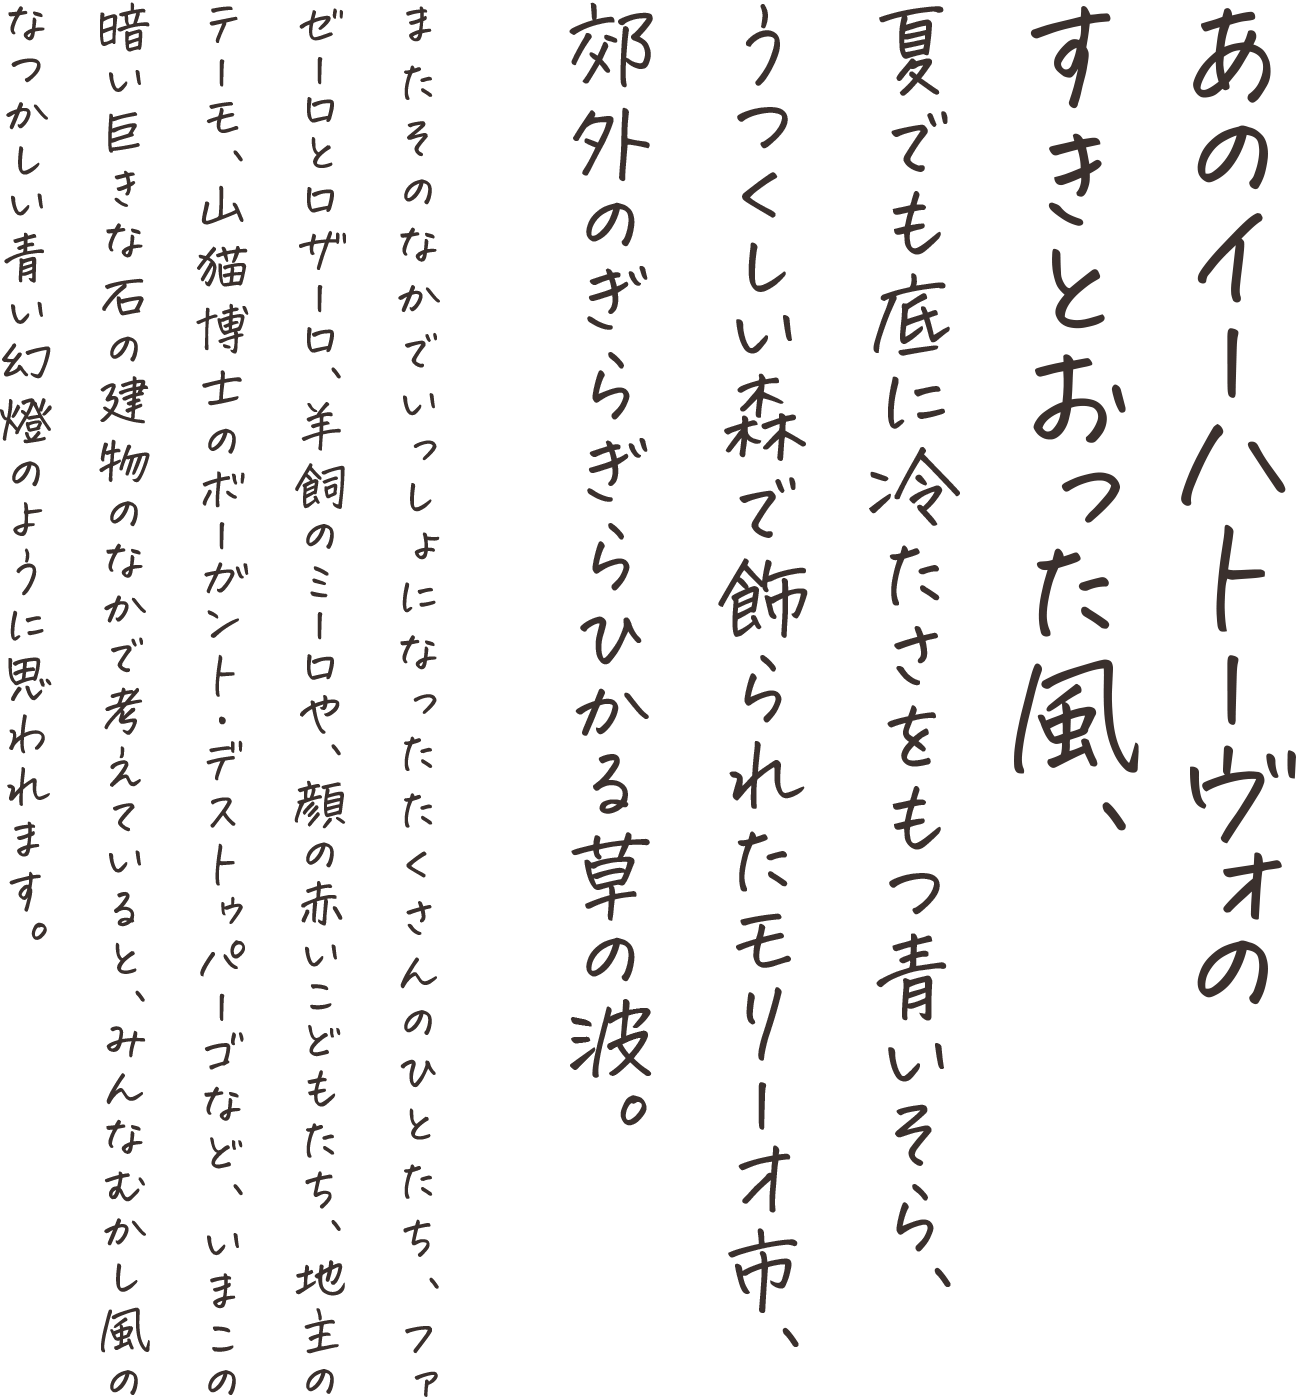 あのイーハトーヴォの
すきとおった風、
夏でも底に冷たさをもつ青いそら、
うつくしい森で飾られたモリーオ市、
郊外のぎらぎらひかる草の波。
またそのなかでいっしょになったたくさんのひとたち、ファ
ゼーロとロザーロ、羊飼のミーロや、顔の赤いこどもたち、地主の
テーモ、山猫博士のボーガント・デストゥパーゴなど、いまこの
暗い巨きな石の建物のなかで考えていると、みんなむかし風の
なつかしい青い幻燈のように思われます。